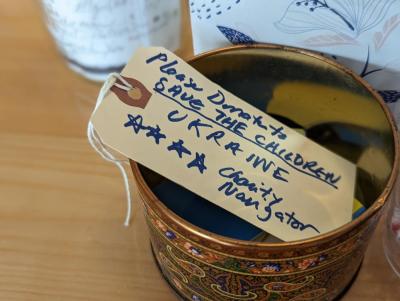 Please Donate to
SAVE THE CHILDREN
UKRAINE
☆☆☆☆ Charity
Navigator